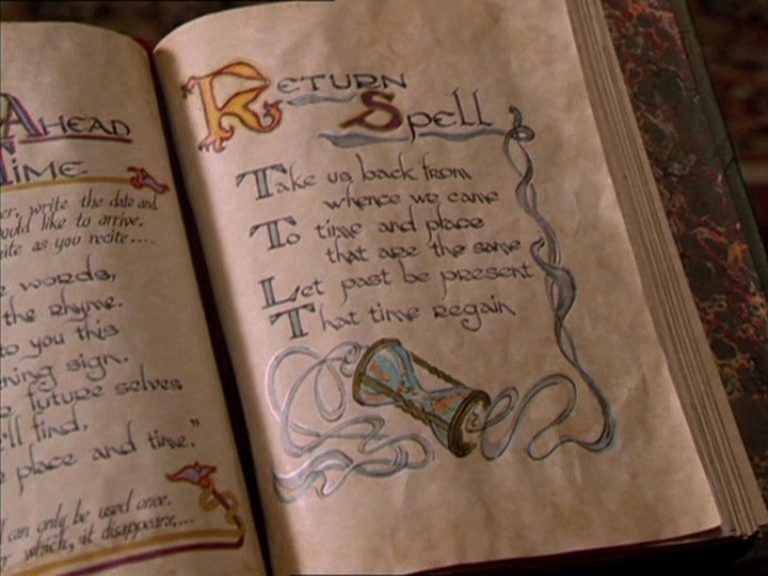 Ahead
Time
write the date and
ould like to arrive.
ite as you recite....
words,
the rhyme.
to you this
ning sign.
future selves
ll find,
place and time."
can only be used once.
which, it disappears,...
Return
Spell
Take us back from
whence we came
To time and place
that are the same
Let past be present
That time regain